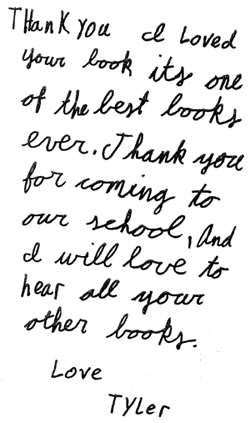 Thank you I Loved
your book its one
of the best books
ever. Thank you
for coming to
our school, And
I will love to
hear all your
other books.
Love
Tyler